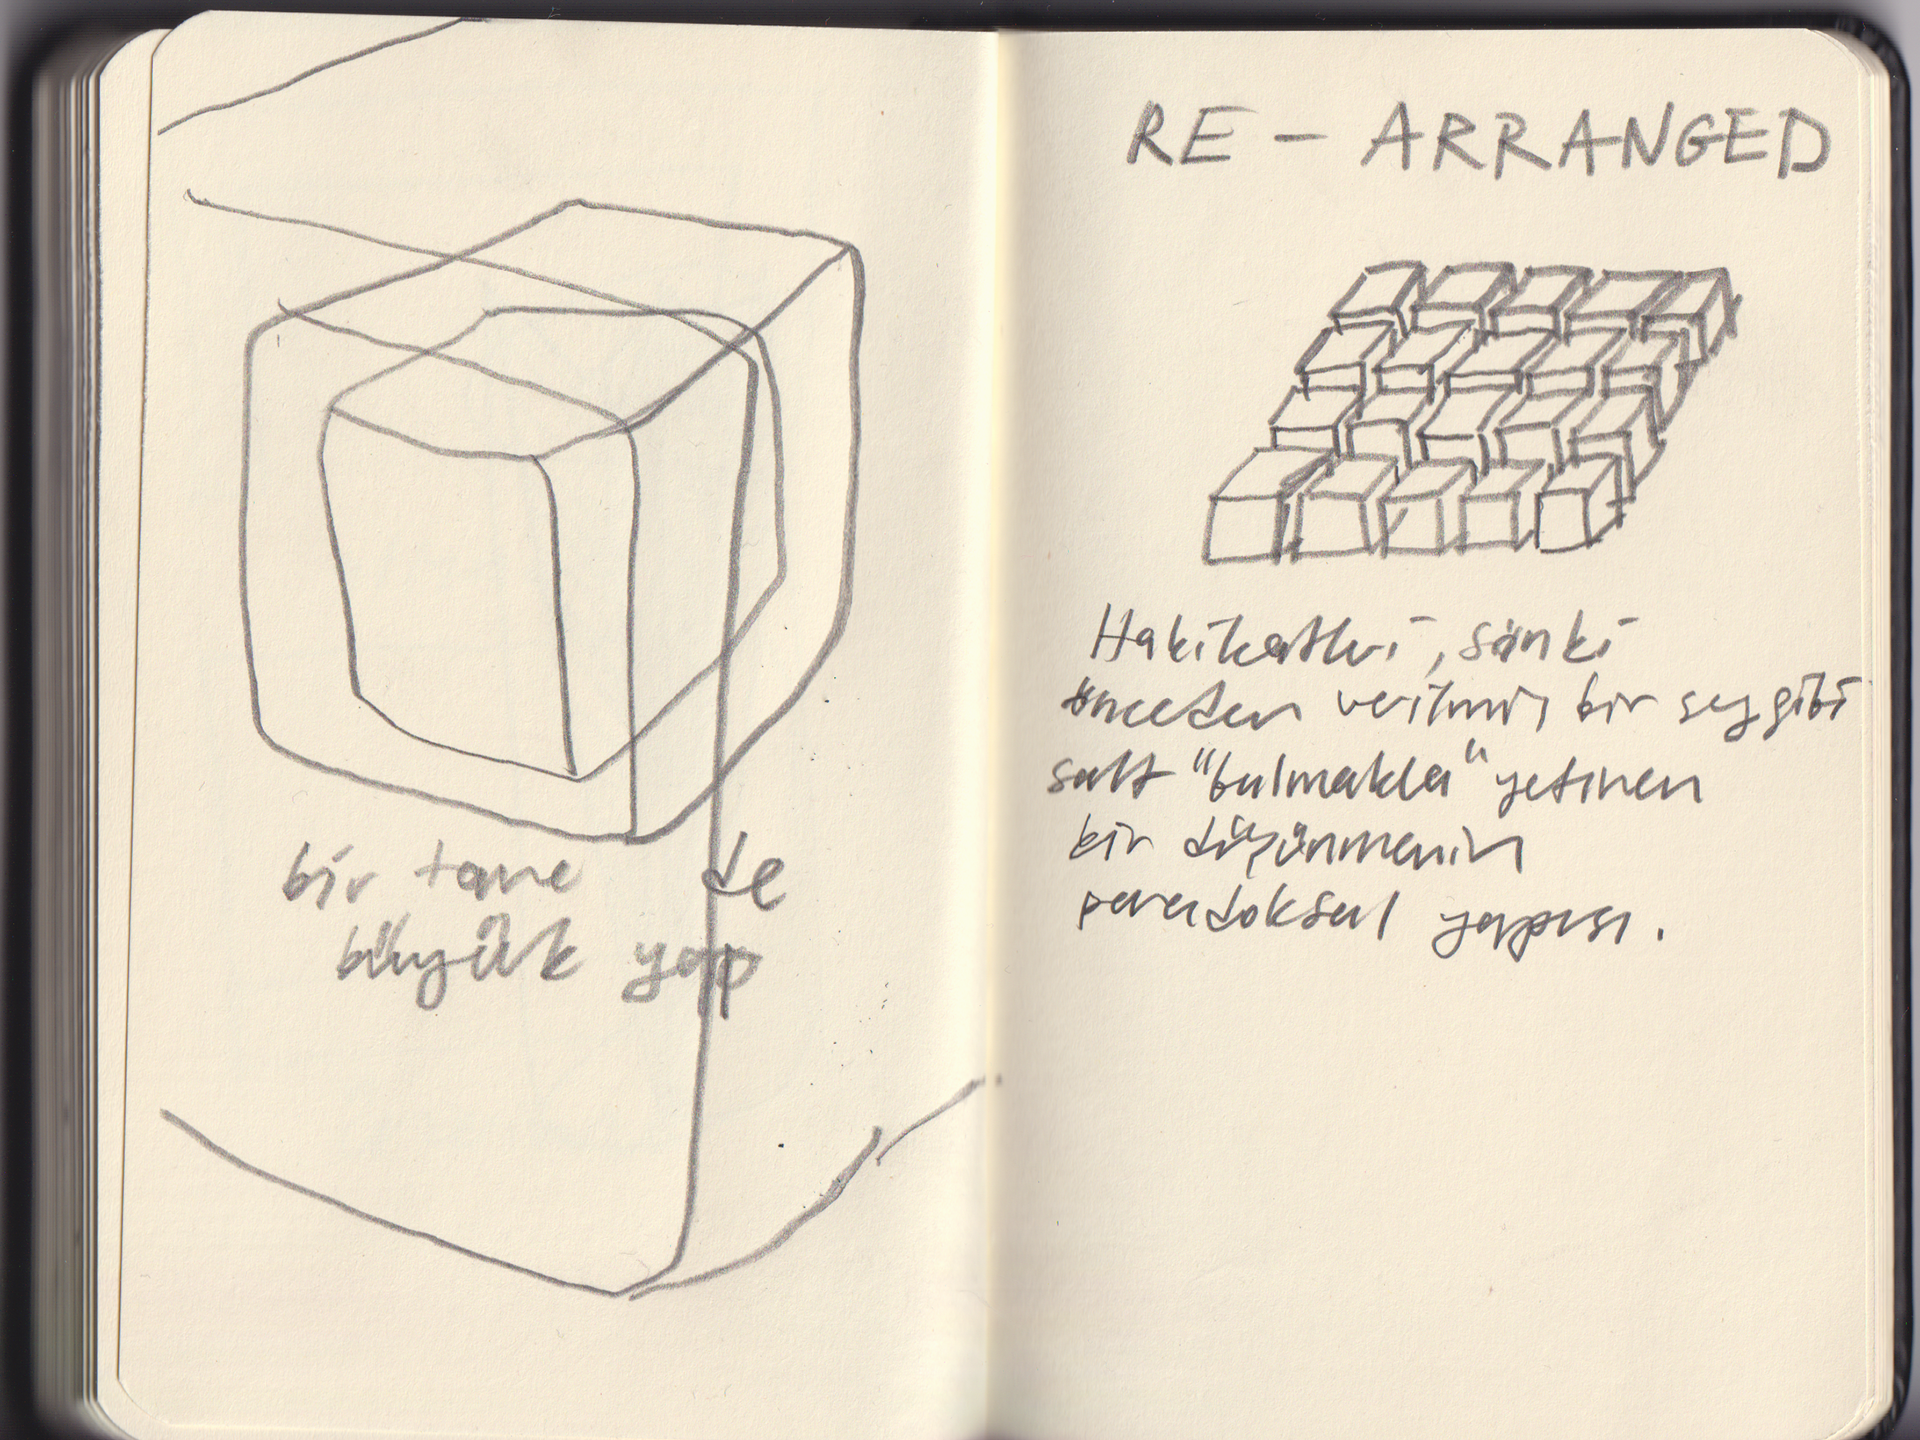 bir tane de
büyük yap
RE - ARRANGED
Hakikatleri, sanki
önceden verilmiş bir şey gibi
salt "bulmakla" yetinen
bir düşünmenin
paradoksal yapısı.